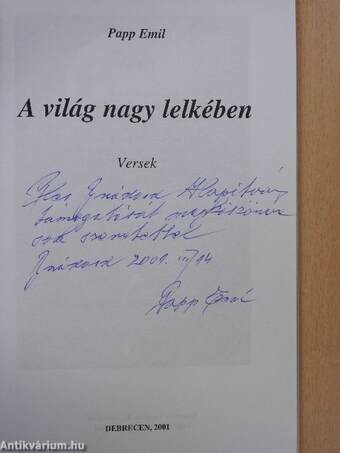 Papp Emil
A világ nagy lelkében
Versek
Alapítvány
támogatását megköszönve
sok szeretettel
2001. III/14
Papp Emil
DEBRECEN, 2001
Antikvárium.hu